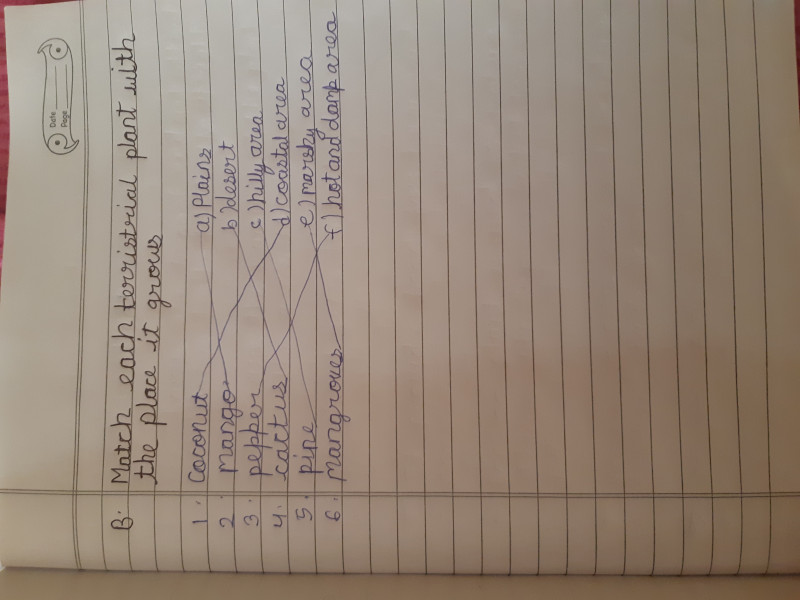 Date
Page
B. Match each terristrial plant with
the place it grows
1. Coconut a) Plains
2. mango b) desert
3. pepper c) hilly area
4. cactus d) coastal area
5. pine e) marshy area
6. Mangroves f) hot and damp area